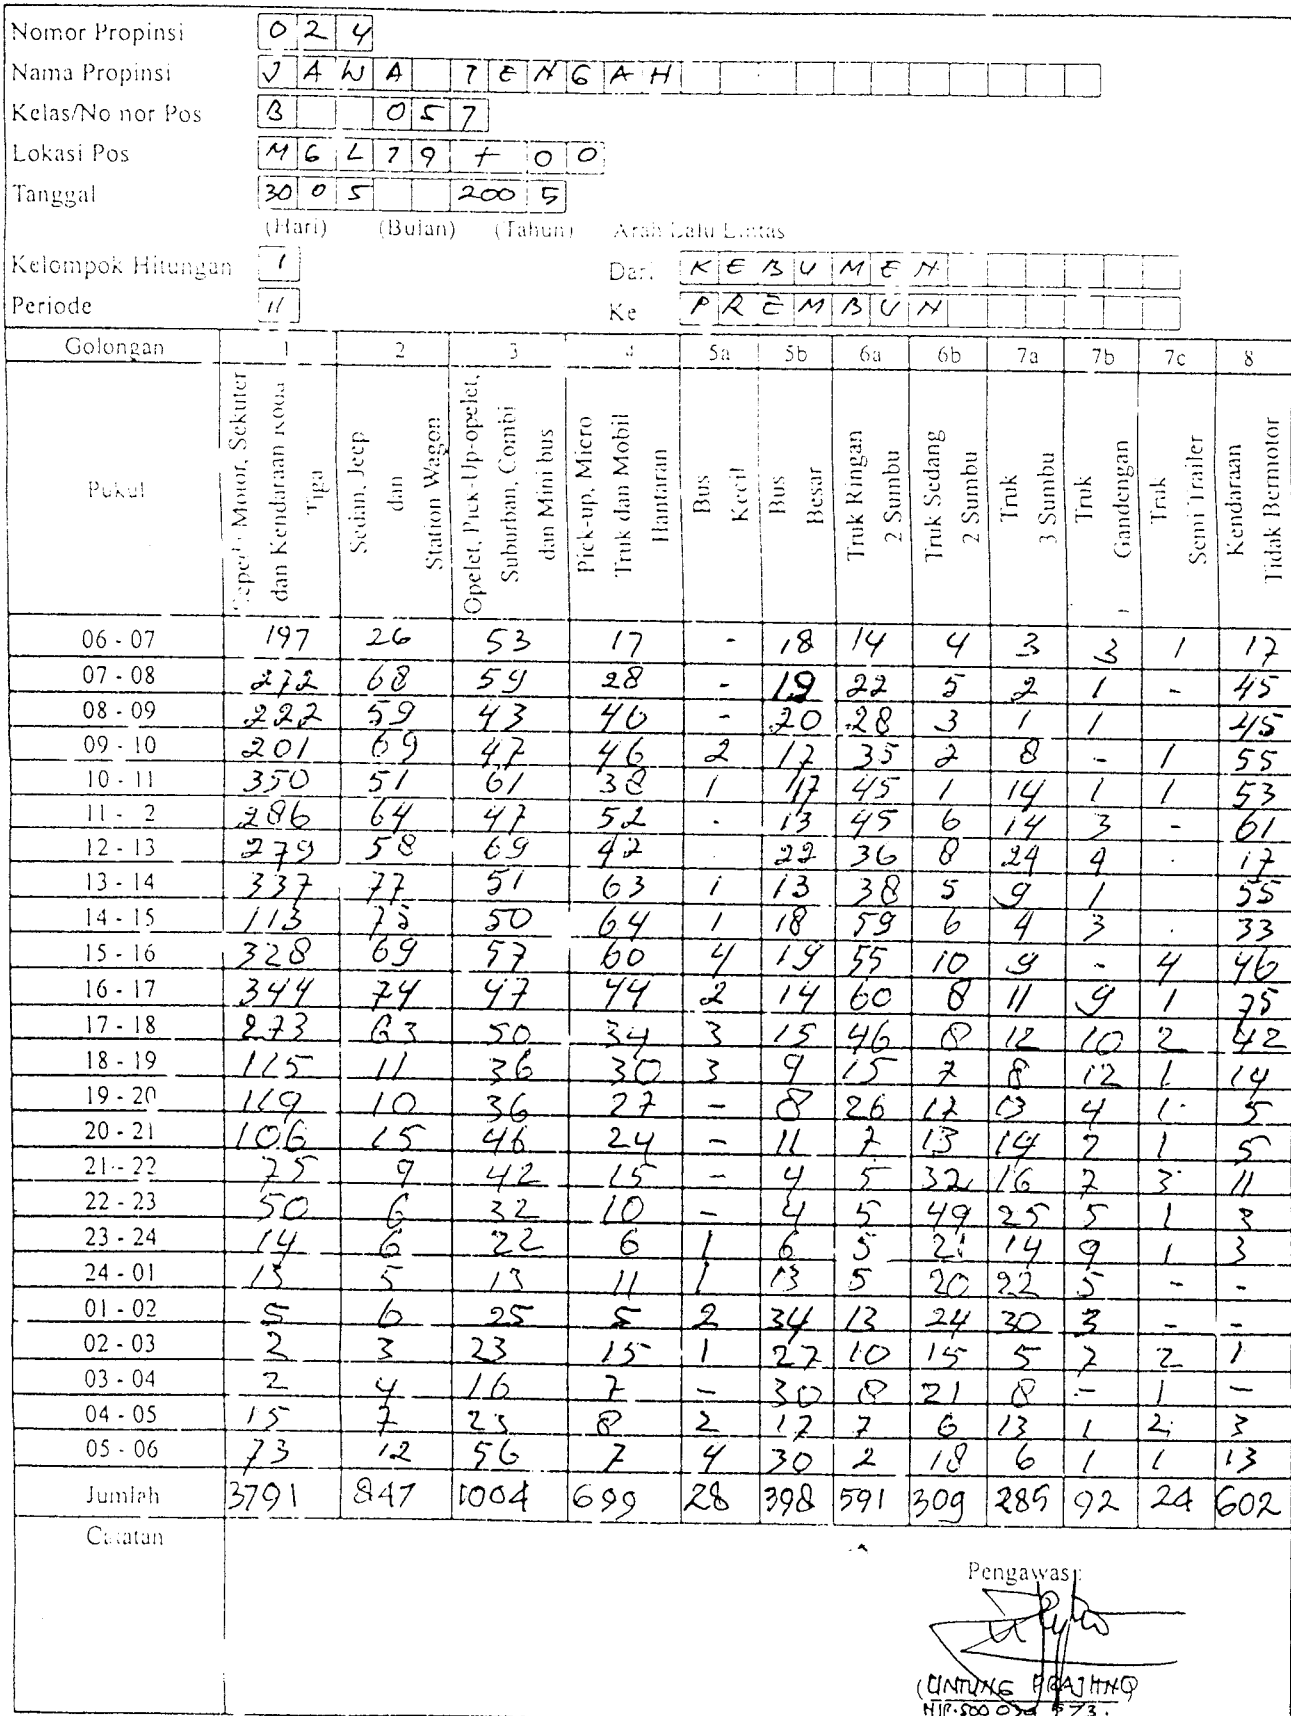 Nomor Propinsi 0 2 4
Nama Propinsi JAWA TENGAH
Kelas/No nor Pos B 057
Lokasi Pos MGL 79 + 00
Tanggal 30 05 2005
(Hari) (Bulan) (Tahun) Arah Lalu Lintas
Kelompok Hitungan 1 Dari KEBUMEN
Periode 11 Ke PREMBUN
Golongan 1 2 3 4 5a 5b 6a 6b 7a 7b 7c 8
Pukul
Sepeda Motor, Sekuter dan Kendaraan Roda Tiga
Sedan, Jeep dan Station Wagon
Opelet, Pick-Up-opelet, Suburban, Combi dan Mini bus
Pick-up, Micro Truk dan Mobil Hantaran
Bus Kecil
Bus Besar
Truk Ringan 2 Sumbu
Truk Sedang 2 Sumbu
Truk 3 Sumbu
Truk Gandengan
Truk Semi Trailer
Kendaraan Tidak Bermotor
06 - 07 197 26 53 17 - 18 14 4 3 3 1 17
07 - 08 272 68 59 28 - 19 22 5 2 1 - 45
08 - 09 222 59 43 40 - 20 28 3 1 1 45
09 - 10 201 69 47 46 2 17 35 2 8 - 1 55
10 - 11 350 51 61 38 1 17 45 1 14 1 1 53
11 - 2 286 64 47 52 - 13 45 6 14 3 - 61
12 - 13 279 58 69 42 · 22 36 8 24 4 · 17
13 - 14 337 77 51 63 1 13 38 5 9 1 55
14 - 15 113 75 50 64 1 18 59 6 4 3 · 33
15 - 16 328 69 57 60 4 19 55 10 9 - 4 46
16 - 17 344 74 47 44 2 14 60 8 11 9 1 75
17 - 18 273 63 50 34 3 15 46 8 12 10 2 42
18 - 19 115 11 36 30 3 9 15 7 8 12 1 14
19 - 20 119 10 36 27 - 8 26 12 13 4 1 5
20 - 21 106 15 46 24 - 11 7 13 14 2 1 5
21 - 22 75 9 42 15 - 4 5 32 16 7 3 11
22 - 23 50 6 32 10 - 4 5 49 25 5 1 3
23 - 24 14 6 22 6 1 6 5 21 14 9 1 3
24 - 01 13 5 13 11 1 13 5 20 22 5 - -
01 - 02 5 6 25 5 2 34 13 24 30 3 - -
02 - 03 2 3 23 15 1 27 10 15 5 7 2 1
03 - 04 2 4 16 7 - 30 8 21 8 - 1 -
04 - 05 15 7 23 8 2 17 7 6 13 1 2 3
05 - 06 73 12 56 7 4 30 2 18 6 1 1 13
Jumlah 3791 847 1004 699 28 398 591 309 285 92 24 602
Catatan
Pengawas :
(UNTUNG PRAJITNO)
NIP. 500 039 573.